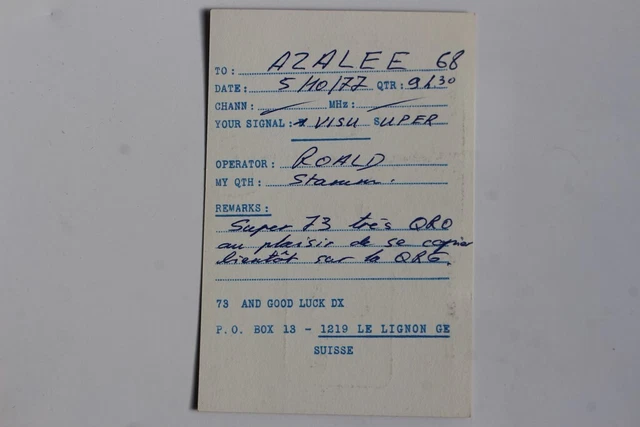 TO: AZALEE 68
DATE: 5/10/77 QTR: 9h30
CHANN: MHz:
YOUR SIGNAL: * VISU SUPER
OPERATOR: ROALD
MY QTH: Stamm.
REMARKS:
Super 73 très QRO
au plaisir de se copier
bientôt sur la QRG.
73 AND GOOD LUCK DX
P.O. BOX 13 - 1219 LE LIGNON GE
SUISSE